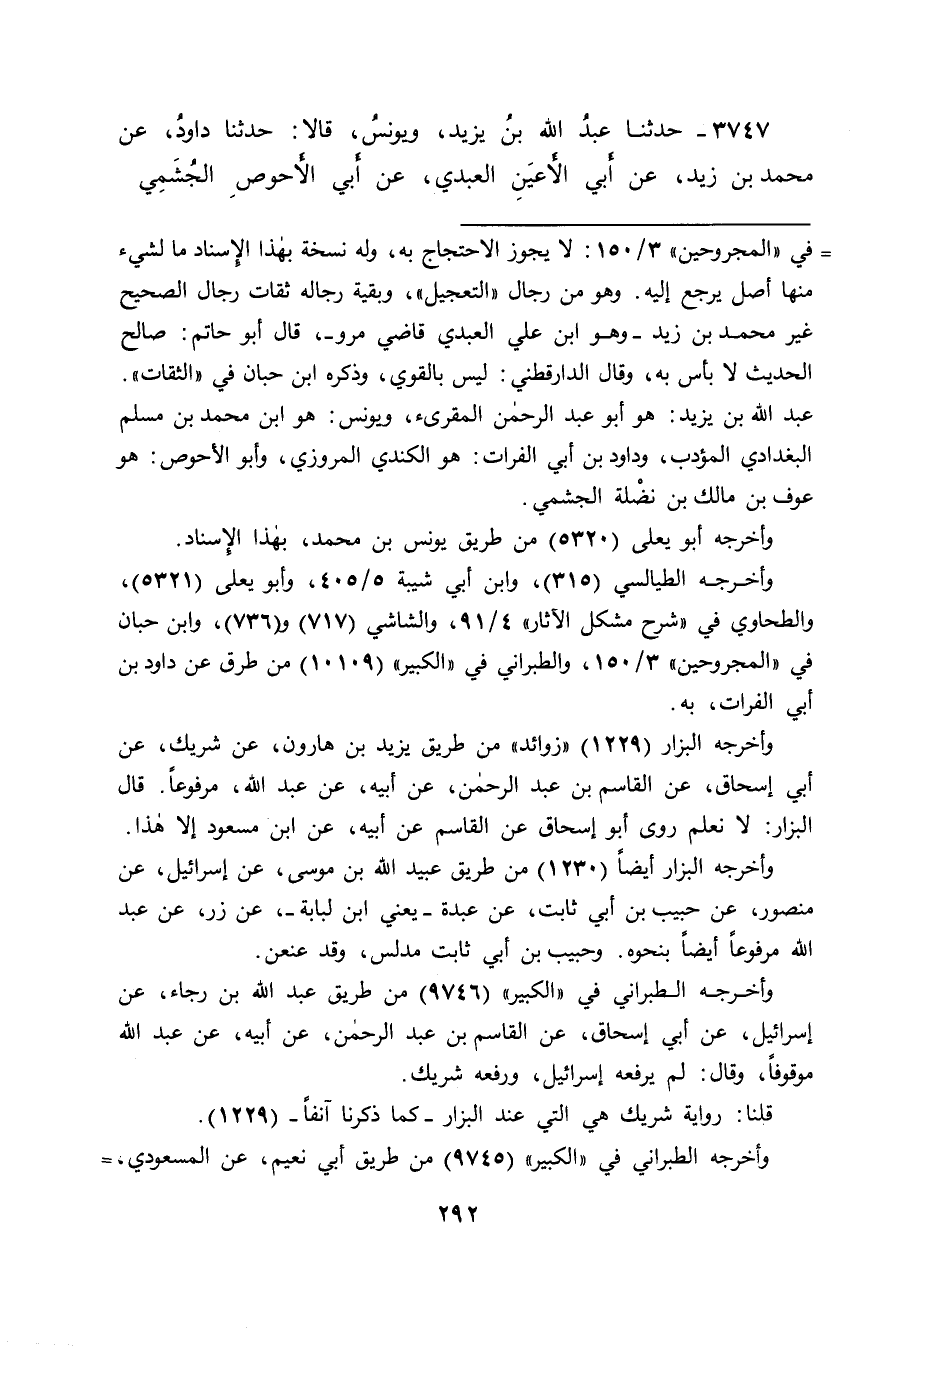 ٣٧٤٧ـ حدثنـا عبدُ الله بنُ يزيد، ويونسُ، قالا: حدثنا داودُ، عن
محمد بن زيد، عن أَبي الأَعيَنِ العبدي، عن أَبي الأَحوصِ الجُشَمِي
= في «المجروحين» ٣/ ١٥٠: لا يجوز الاحتجاج به، وله نسخة بهٰذا الإسناد ما لشيء
منها أصل يرجع إليه. وهو من رجال «التعجيل»، وبقية رجاله ثقات رجال الصحيح
غير محمـد بن زيد ـوهـو ابن علي العبدي قاضي مروـ، قال أبو حاتم: صالح
الحديث لا بأس به، وقال الدارقطني: ليس بالقوي، وذكره ابن حبان في «الثقات».
عبد الله بن يزيد: هو أبو عبد الرحمٰن المقرىء، ويونس: هو ابن محمد بن مسلم
البغدادي المؤدب، وداود بن أبي الفرات: هو الكندي المروزي، وأبو الأحوص: هو
عوف بن مالك بن نضْلة الجشمي.
وأخرجه أبو يعلى (٥٣٢٠) من طريق يونس بن محمد، بهٰذا الإسناد.
وأخـرجـه الطيالسي (٣١٥)، وابن أبي شيبة ٤٠٥/٥، وأبو يعلى (٥٣٢١)،
والطحاوي في «شرح مشكل الآثار» ٩١/٤، والشاشي (٧١٧) و(٧٣٦)، وابن حبان
في «المجروحين» ٣/ ١٥٠، والطبراني في «الكبير» (١٠١٠٩) من طرق عن داود بن
أبي الفرات، به.
وأخرجه البزار (١٢٢٩) «زوائد» من طريق يزيد بن هارون، عن شريك، عن
أبي إسحاق، عن القاسم بن عبد الرحمٰن، عن أبيه، عن عبد الله، مرفوعاً. قال
البزار: لا نعلم روى أبو إسحاق عن القاسم عن أبيه، عن ابن مسعود إلا هٰذا.
وأخرجه البزار أيضاً (١٢٣٠) من طريق عبيد الله بن موسى، عن إسرائيل، عن
منصور، عن حبيب بن أبي ثابت، عن عبدة ـيعني ابن لبابةـ، عن زر، عن عبد
الله مرفوعاً أيضاً بنحوه. وحبيب بن أبي ثابت مدلس، وقد عنعن.
وأخـرجـه الـطبراني في «الكبير» (٩٧٤٦) من طريق عبد الله بن رجاء، عن
إسرائيل، عن أبي إسحاق، عن القاسم بن عبد الرحمٰن، عن أبيه، عن عبد الله
موقوفاً، وقال: لم يرفعه إسرائيل، ورفعه شريك.
قلنا: رواية شريك هي التي عند البزار ـكما ذكرنا آنفاًـ (١٢٢٩).
وأخرجه الطبراني في «الكبير» (٩٧٤٥) من طريق أبي نعيم، عن المسعودي،=
٢٩٢